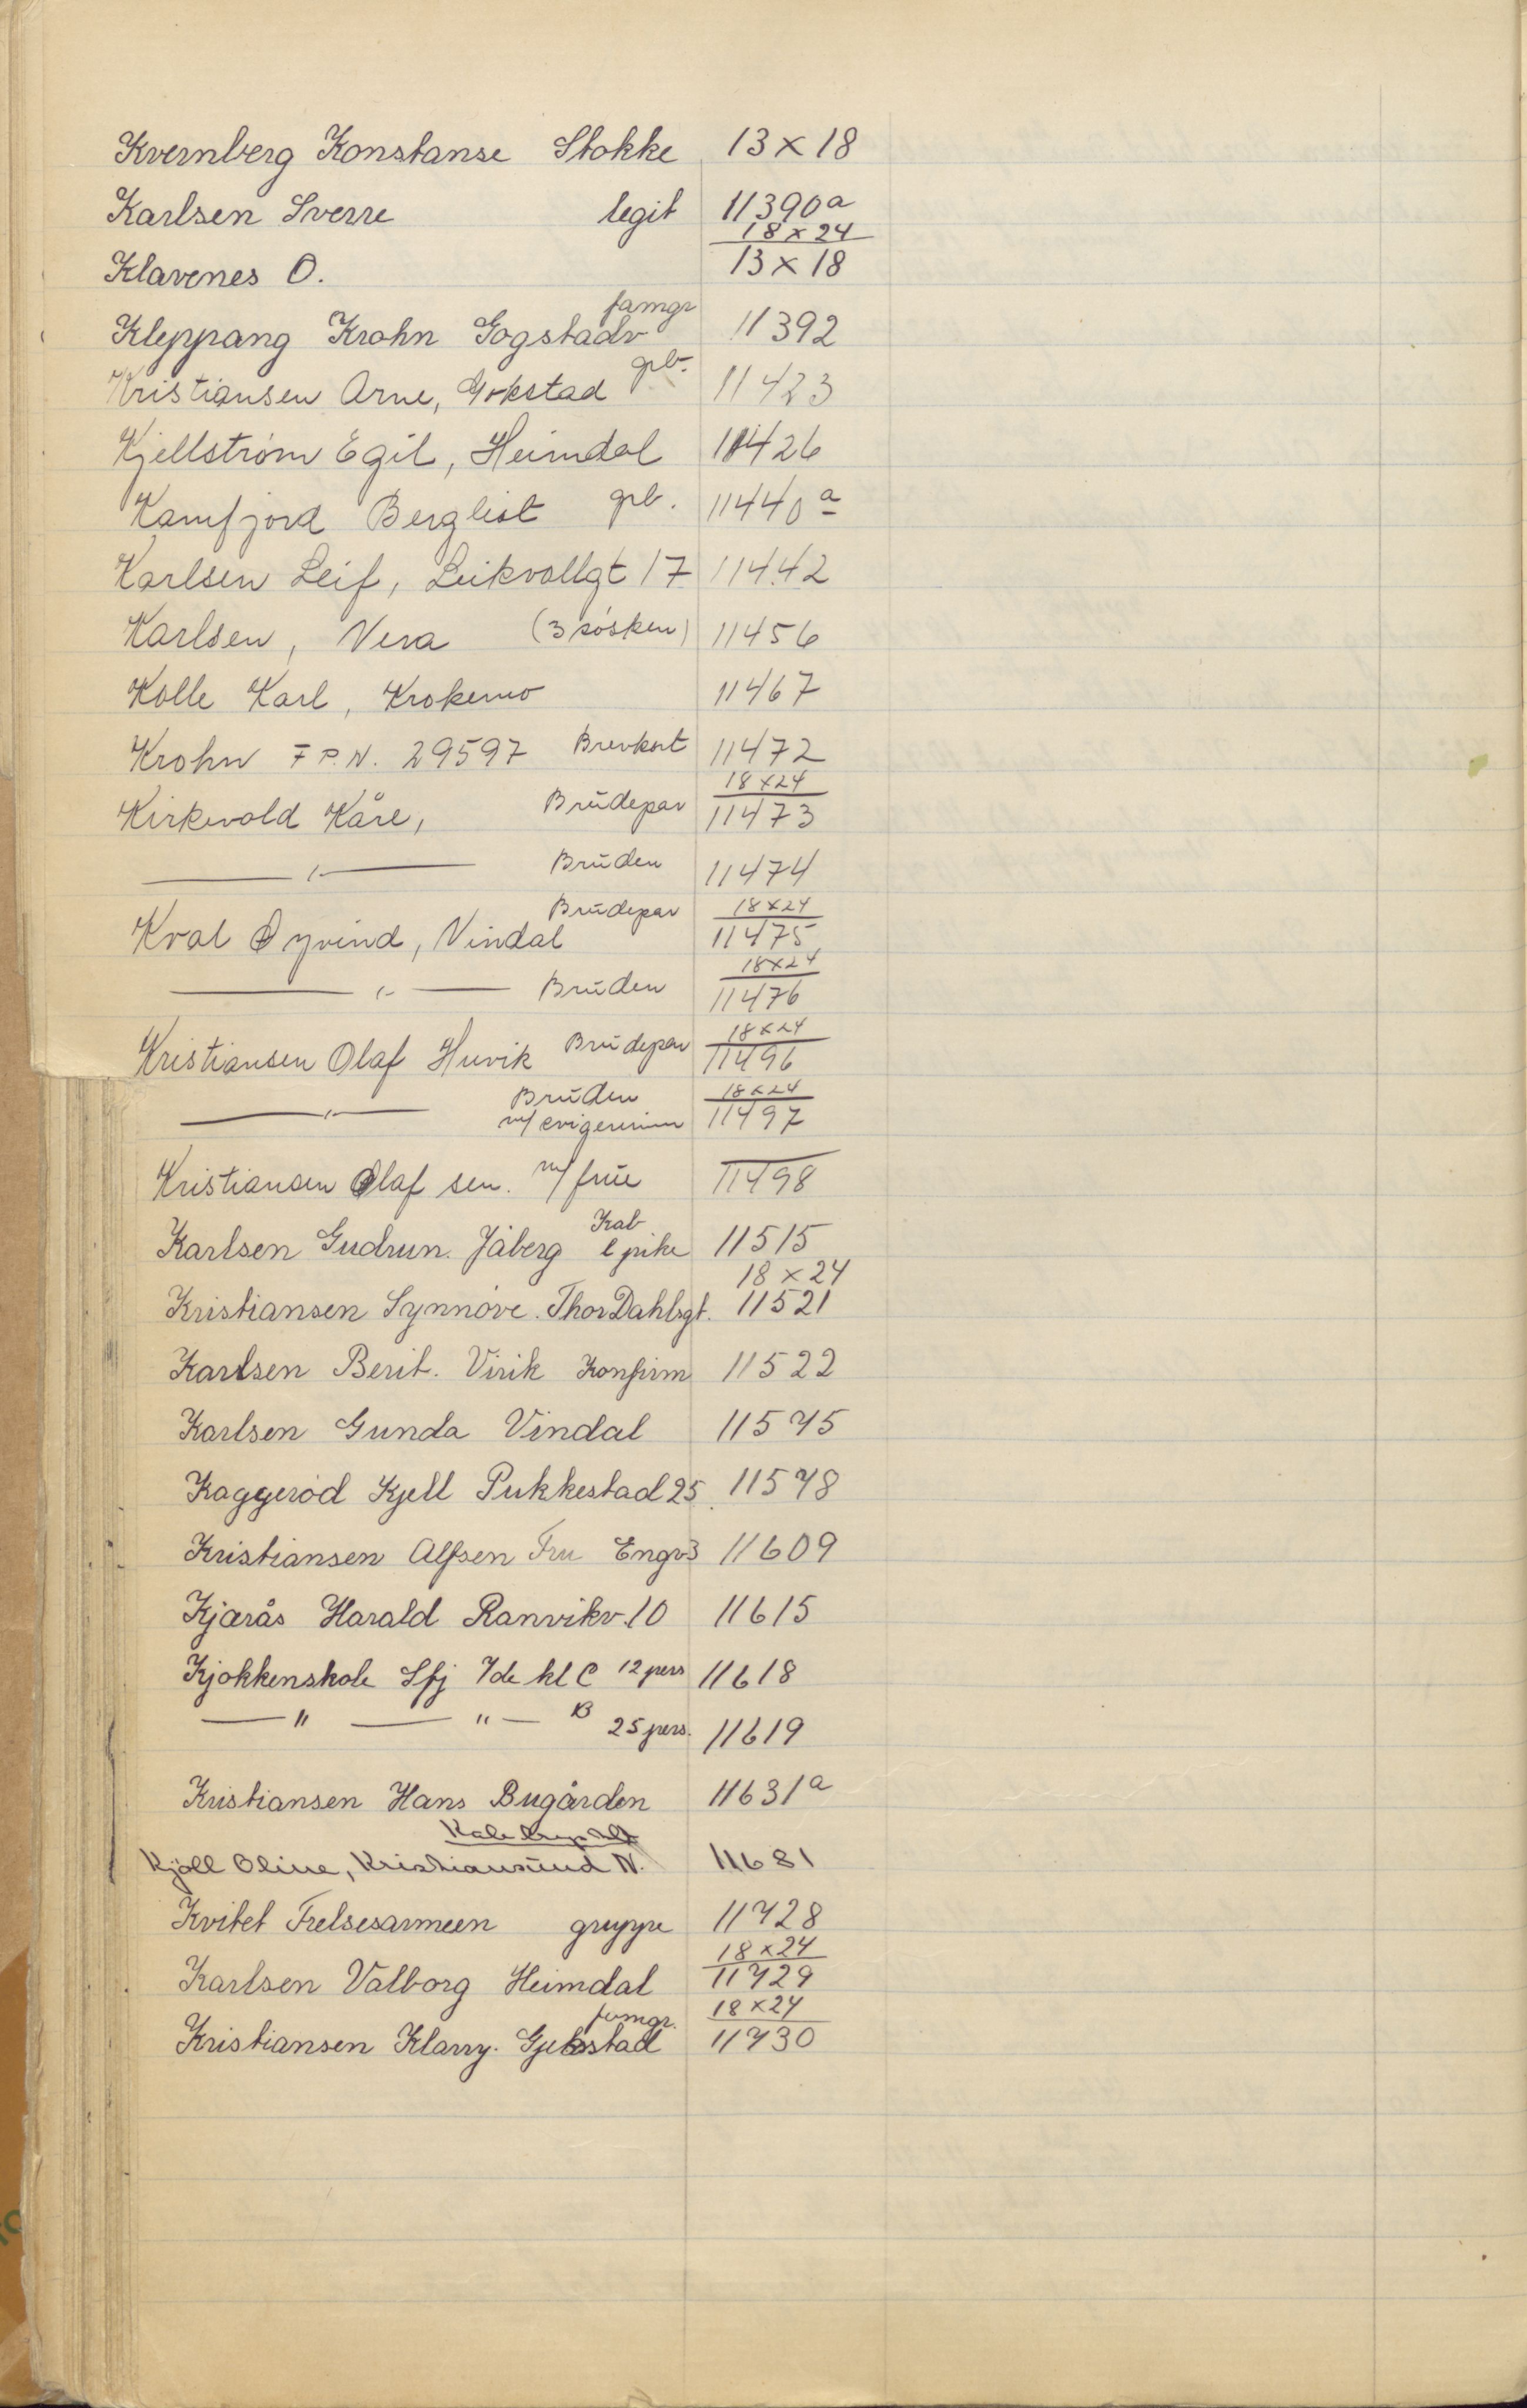 Kvernberg Konstanse Stokke 13 x 18
Karlsen Sverre legit 11390a
18 x 24
Klavenes O. 13 x 18
famgr
Kleppang Krohn Gogstadv 11392
Kristiansen Arne, Gokstad grb. 11423
Kjellström Egil, Heimdal 11426
Kamfjord Bergliot grb. 11440a
Karlsen Leif, Leikvollgt 17 11442
Karlsen, Vera (3 søsken) 11456
Kolle Karl, Krokemo 11467
Krohn F P. N. 29597 Brevkort 11472
18x24
Kirkevold Kåre, Brūdepar 11473
—— " —— Brūden 11474
Brūdepar 18x24
Kval Øyvind, Vindal 11475
18x24
—— " —— Brūden 11476
18x24
Kristiansen Olaf Huvik Brūdepar 11496
Brūden 18x24
—— " —— m/ svigerinn 11497
Kristiansen Olaf sen. m/ frūe 11498
Kab
Karlsen Gudrun. Jåberg l pike 11515
18 x 24
Kristiansen Synnøve. Thor Dahlsgt. 11521
Karlsen Berit. Virik Konfirm 11522
Karlsen Gunda Vindal 11575
Kaggerød Kjell Pukkestad 25 11578
Kristiansen Alfsen Fru Engv3 11609
Kjærås Harald Ranvikv. 10 11615
Kjøkkenskole Sfj 7de kl C 12 pers 11618
—— " —— " — B 25 pers. 11619
Kristiansen Hans Bugården 11631a
Kjøll Oline, Kristiansūnd N. 11681
Kvitet Frelsesarmeen gruppe 11728
18x24
Karlsen Valborg Heimdal 11729
famgr. 18x24
Kristiansen Klarry. Gjekstad 11730